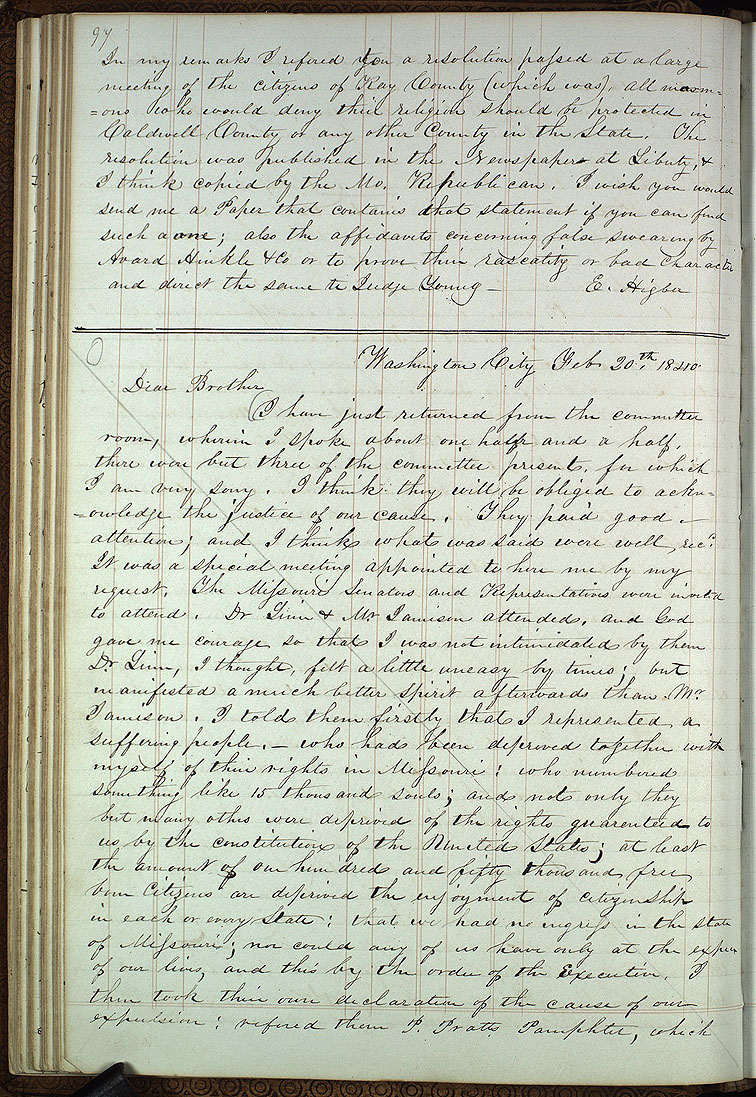 97
In my remarks I refered you a resolution passed at a large
meeting of the citizens of Ray County (which was), all morm=
=ons who would deny their religion should be protected in
Caldwell County or any other County in the State. The
resolution was published in the Newspaper at Liberty, &
I think copied by the Mo. Republican. I wish you would
send me a Paper that contains that statement if you can find
such a one; also the affidavits concerning false swearing by
Avard Hinkle &Co or to prove their rascality or bad character
and direct the same to Judge Young — E. Higbee
Washington City Feb. 20th, 1840
Dear Brother
I have just returned from the committee
room, wherein I spoke about one half and a half,
there were but three of the committee present, for which
I am very sorry. I think they will be obliged to ackn=
=owledge the justice of our cause. They paid good —
attention; and I think what was said were well recd.
It was a special meeting appointed to here me by my
request. The Missouri Senators and Representatives were invited
to attend. Dr Linn & Mr Jamison attended, and God
gave me courage so that I was not intimidated by them
Dr. Linn, I thought, felt a little uneasy by times; but
manifested a much better spirit afterwards than Mr
Jamieson. I told them firstly that I represented a
suffering people, — who had been deprived together with
myself of their rights in Missouri: who numbered
something like 15 thousand souls; and not only they
but many others were deprived of the rights guarenteed to
us by the constitution of the United States; at least
the amount of one hundred and fifty thousand free
born Citizens are deprived the enjoyment of citizenship
in each or every State: that we had no ingress in the state
of Missouri; nor could any of us have only at the expen
of our lives, and this by the order of the Executive. I
then took their own declaration of the cause of our
expulsion: refered them P. Pratts Pamphlet, which